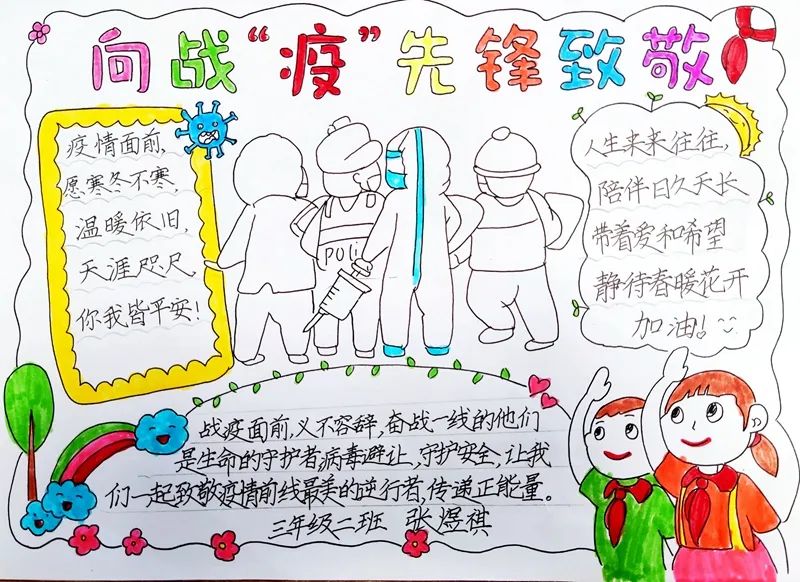 向战“疫”先锋致敬
疫情面前,
愿寒冬不寒
温暖依旧,
天涯咫尺
你我皆平安!
POLI
人生来来往往,
陪伴日久天长
带着爱和希望
静待春暖花开
加油!
战疫面前,义不容辞,奋战一线的他们
是生命的守护者,病毒避让,守护安全,让我
们一起致敬疫情前线最美的逆行者,传递正能量。
三年级二班 张煜祺